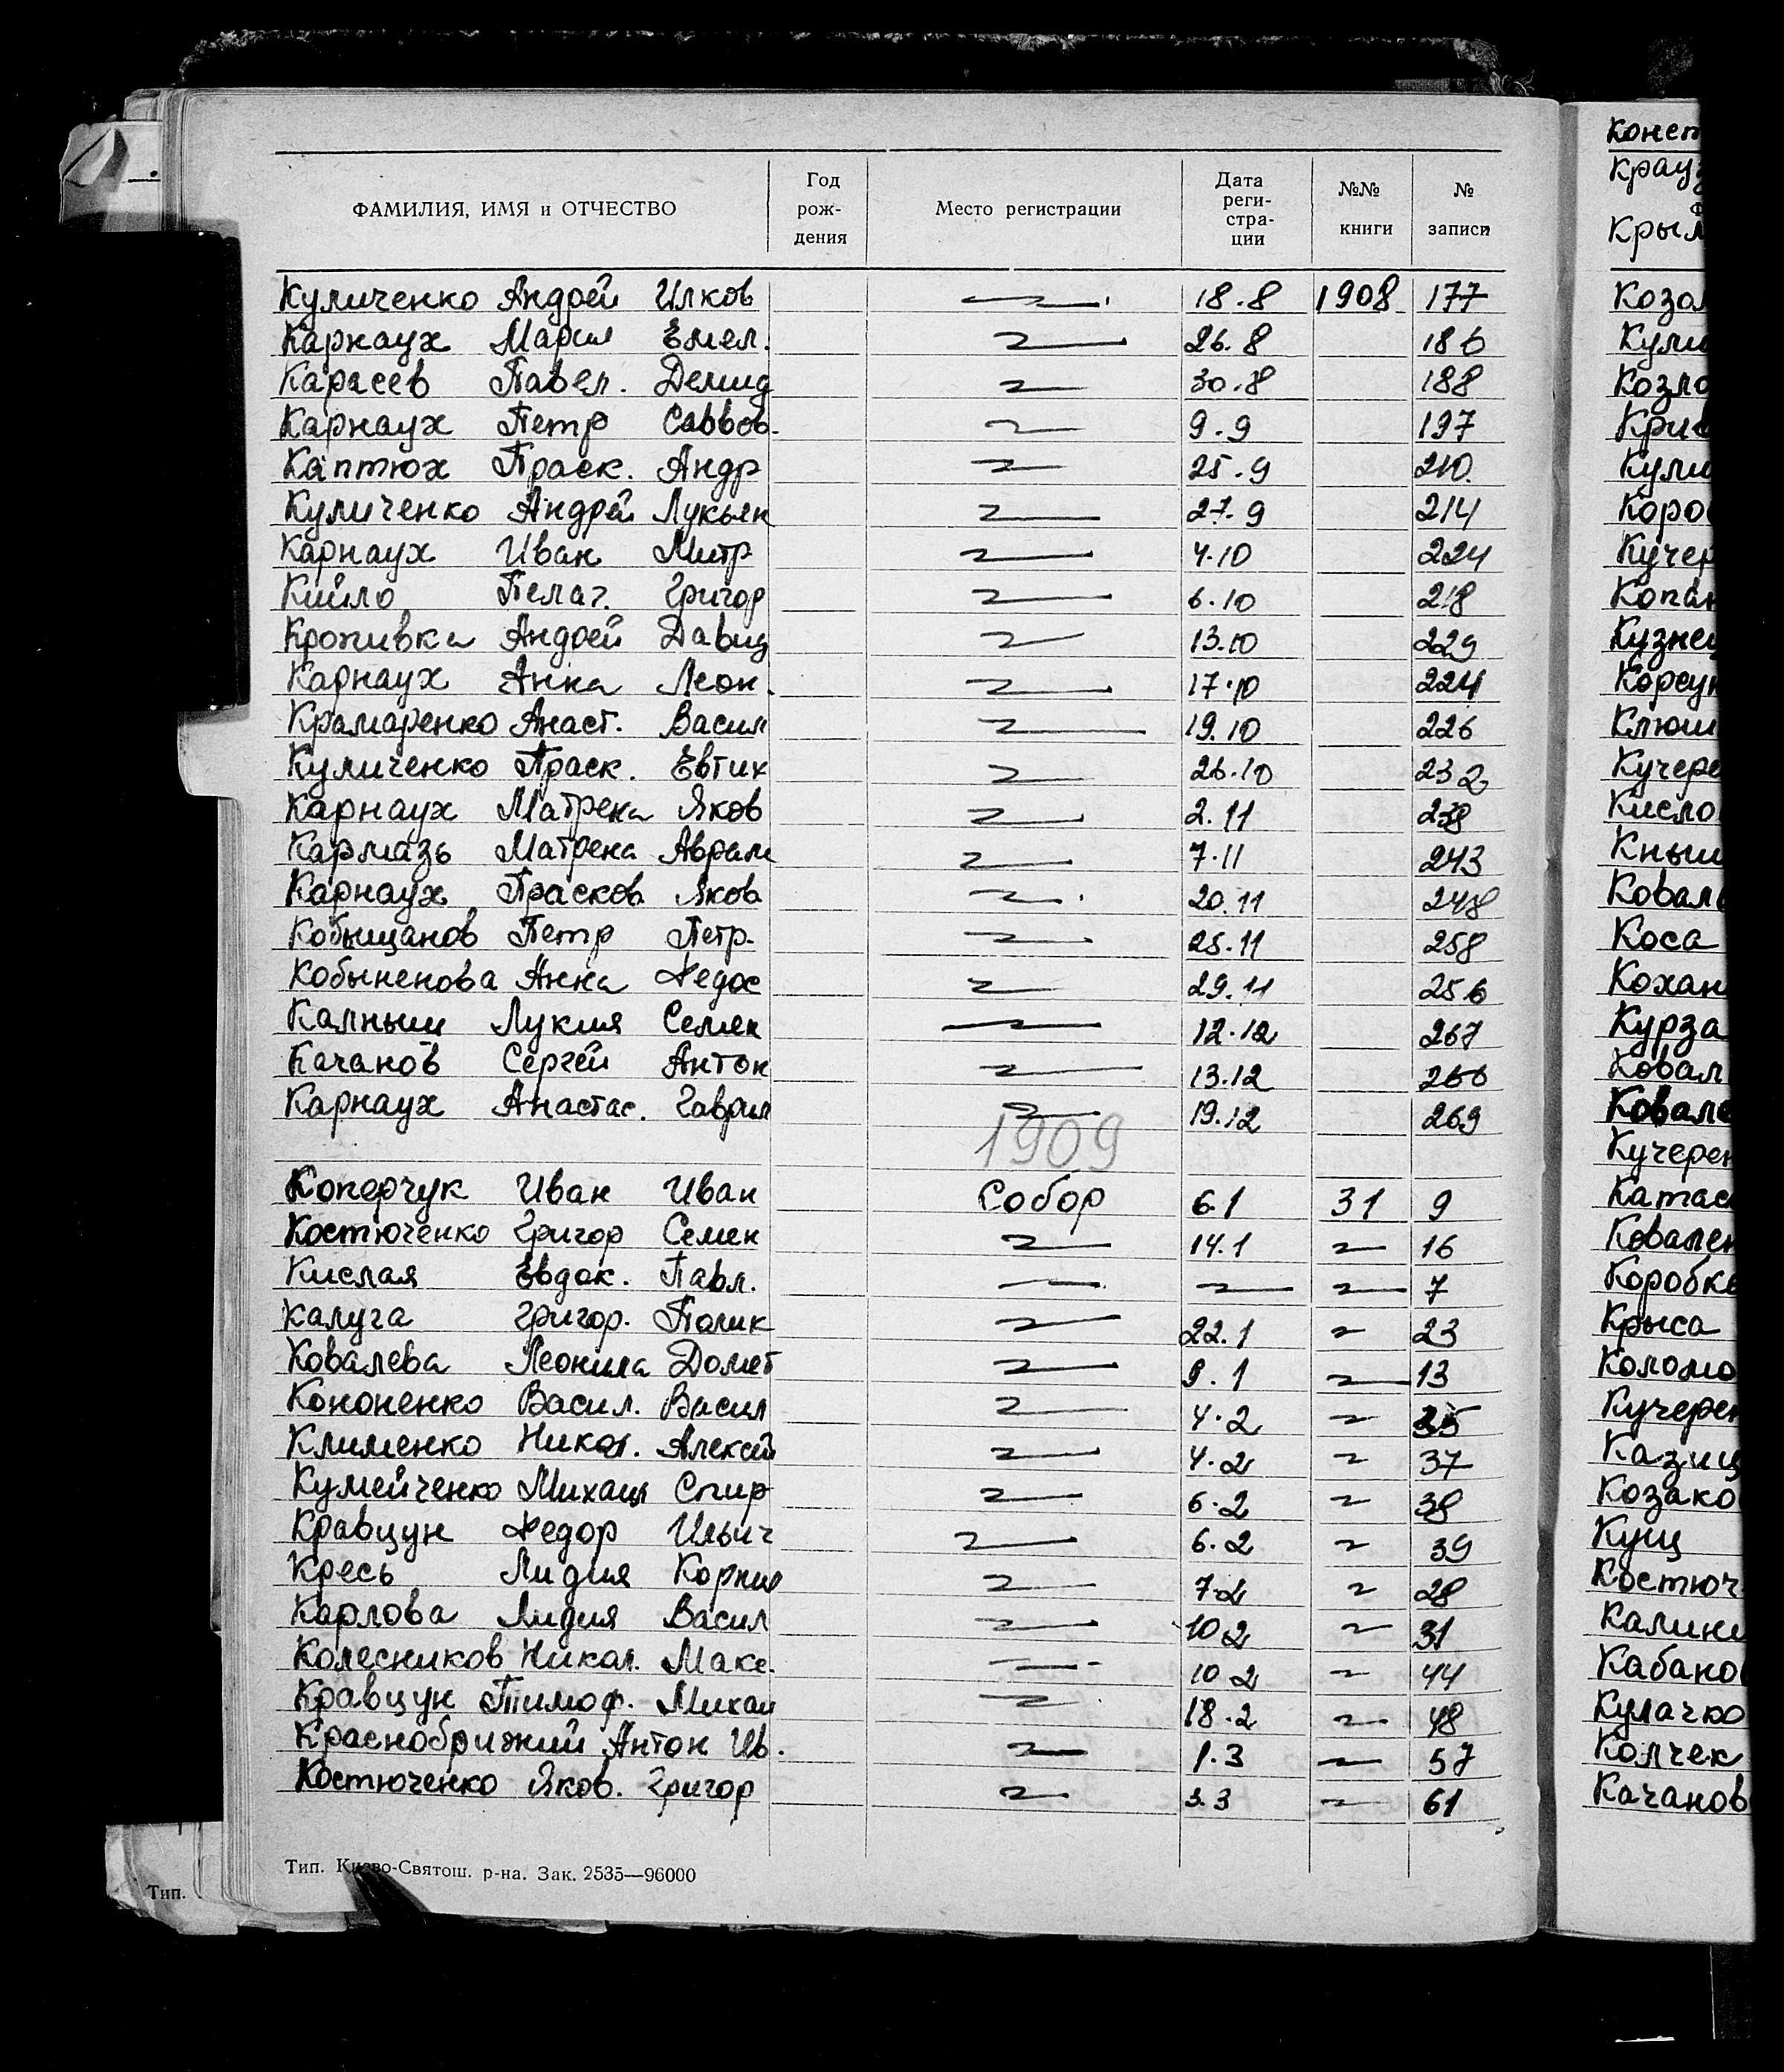 ФАМИЛИЯ, ИМЯ и ОТЧЕСТВО Год рождения Место регистрации Дата регистрации №№ книги № записи
Куличенко Андрей Илков 18.8 1908 177
Карнаух Мария Емел. 26.8 186
Карасев Павел. Демид 30.8 188
Карнаух Петр Саввов. 9.9 197
Каптюх Праск. Андр 25.9 210.
Куличенко Андрей Лукьян 27.9 214
Карнаух Иван Митр 4.10 224
Кийло Пелаг. Григор 6.10 218
Кропивка Андрей Давид 13.10 229
Карнаух Анна Леон. 17.10 224
Крамаренко Анаст. Васил 19.10 226
Куличенко Праск. Евтих 26.10 232
Карнаух Матрена Яков 2.11 238
Кармазь Матрена Аврам 7.11 243
Карнаух Прасков Яков 20.11 248
Кобыщанов Петр Петр. 25.11 258
Кобыненова Анна Федос 29.11 256
Калныш Лукия Семен 12.12 267
Качанов Сергей Антон 13.12 266
Карнаух Анастас. Гаврил 19.12 269
1909
Коперчук Иван Иван Собор 6.1 31 9
Костюченко Григор Семен 14.1 16
Кислая Евдок. Павл. 7
Калуга Григор. Полик 22.1 23
Ковалева Леонила Домет 9.1 13
Кононенко Васил. Васил 4.2
Клименко Никол. Алексей 4.2 37
Кумейченко Михаил Спир 6.2 38
Кравцун Федор Ильич 6.2 39
Кресь Лидия Корнил 7.2 28
Карлова Лидия Васил 10.2 31
Колесников Никол. Макс. 10.2 44
Кравцун Тимоф. Михаил 18.2 48
Краснобрижий Антон Ив. 1.3 57
Костюченко Яков. Григор 3.3 61
Тип. Киево-Святош. р-на. Зак. 2535—96000
Тип.
Коса
Курза
Крыса
Кущ
Колчек
Качанов